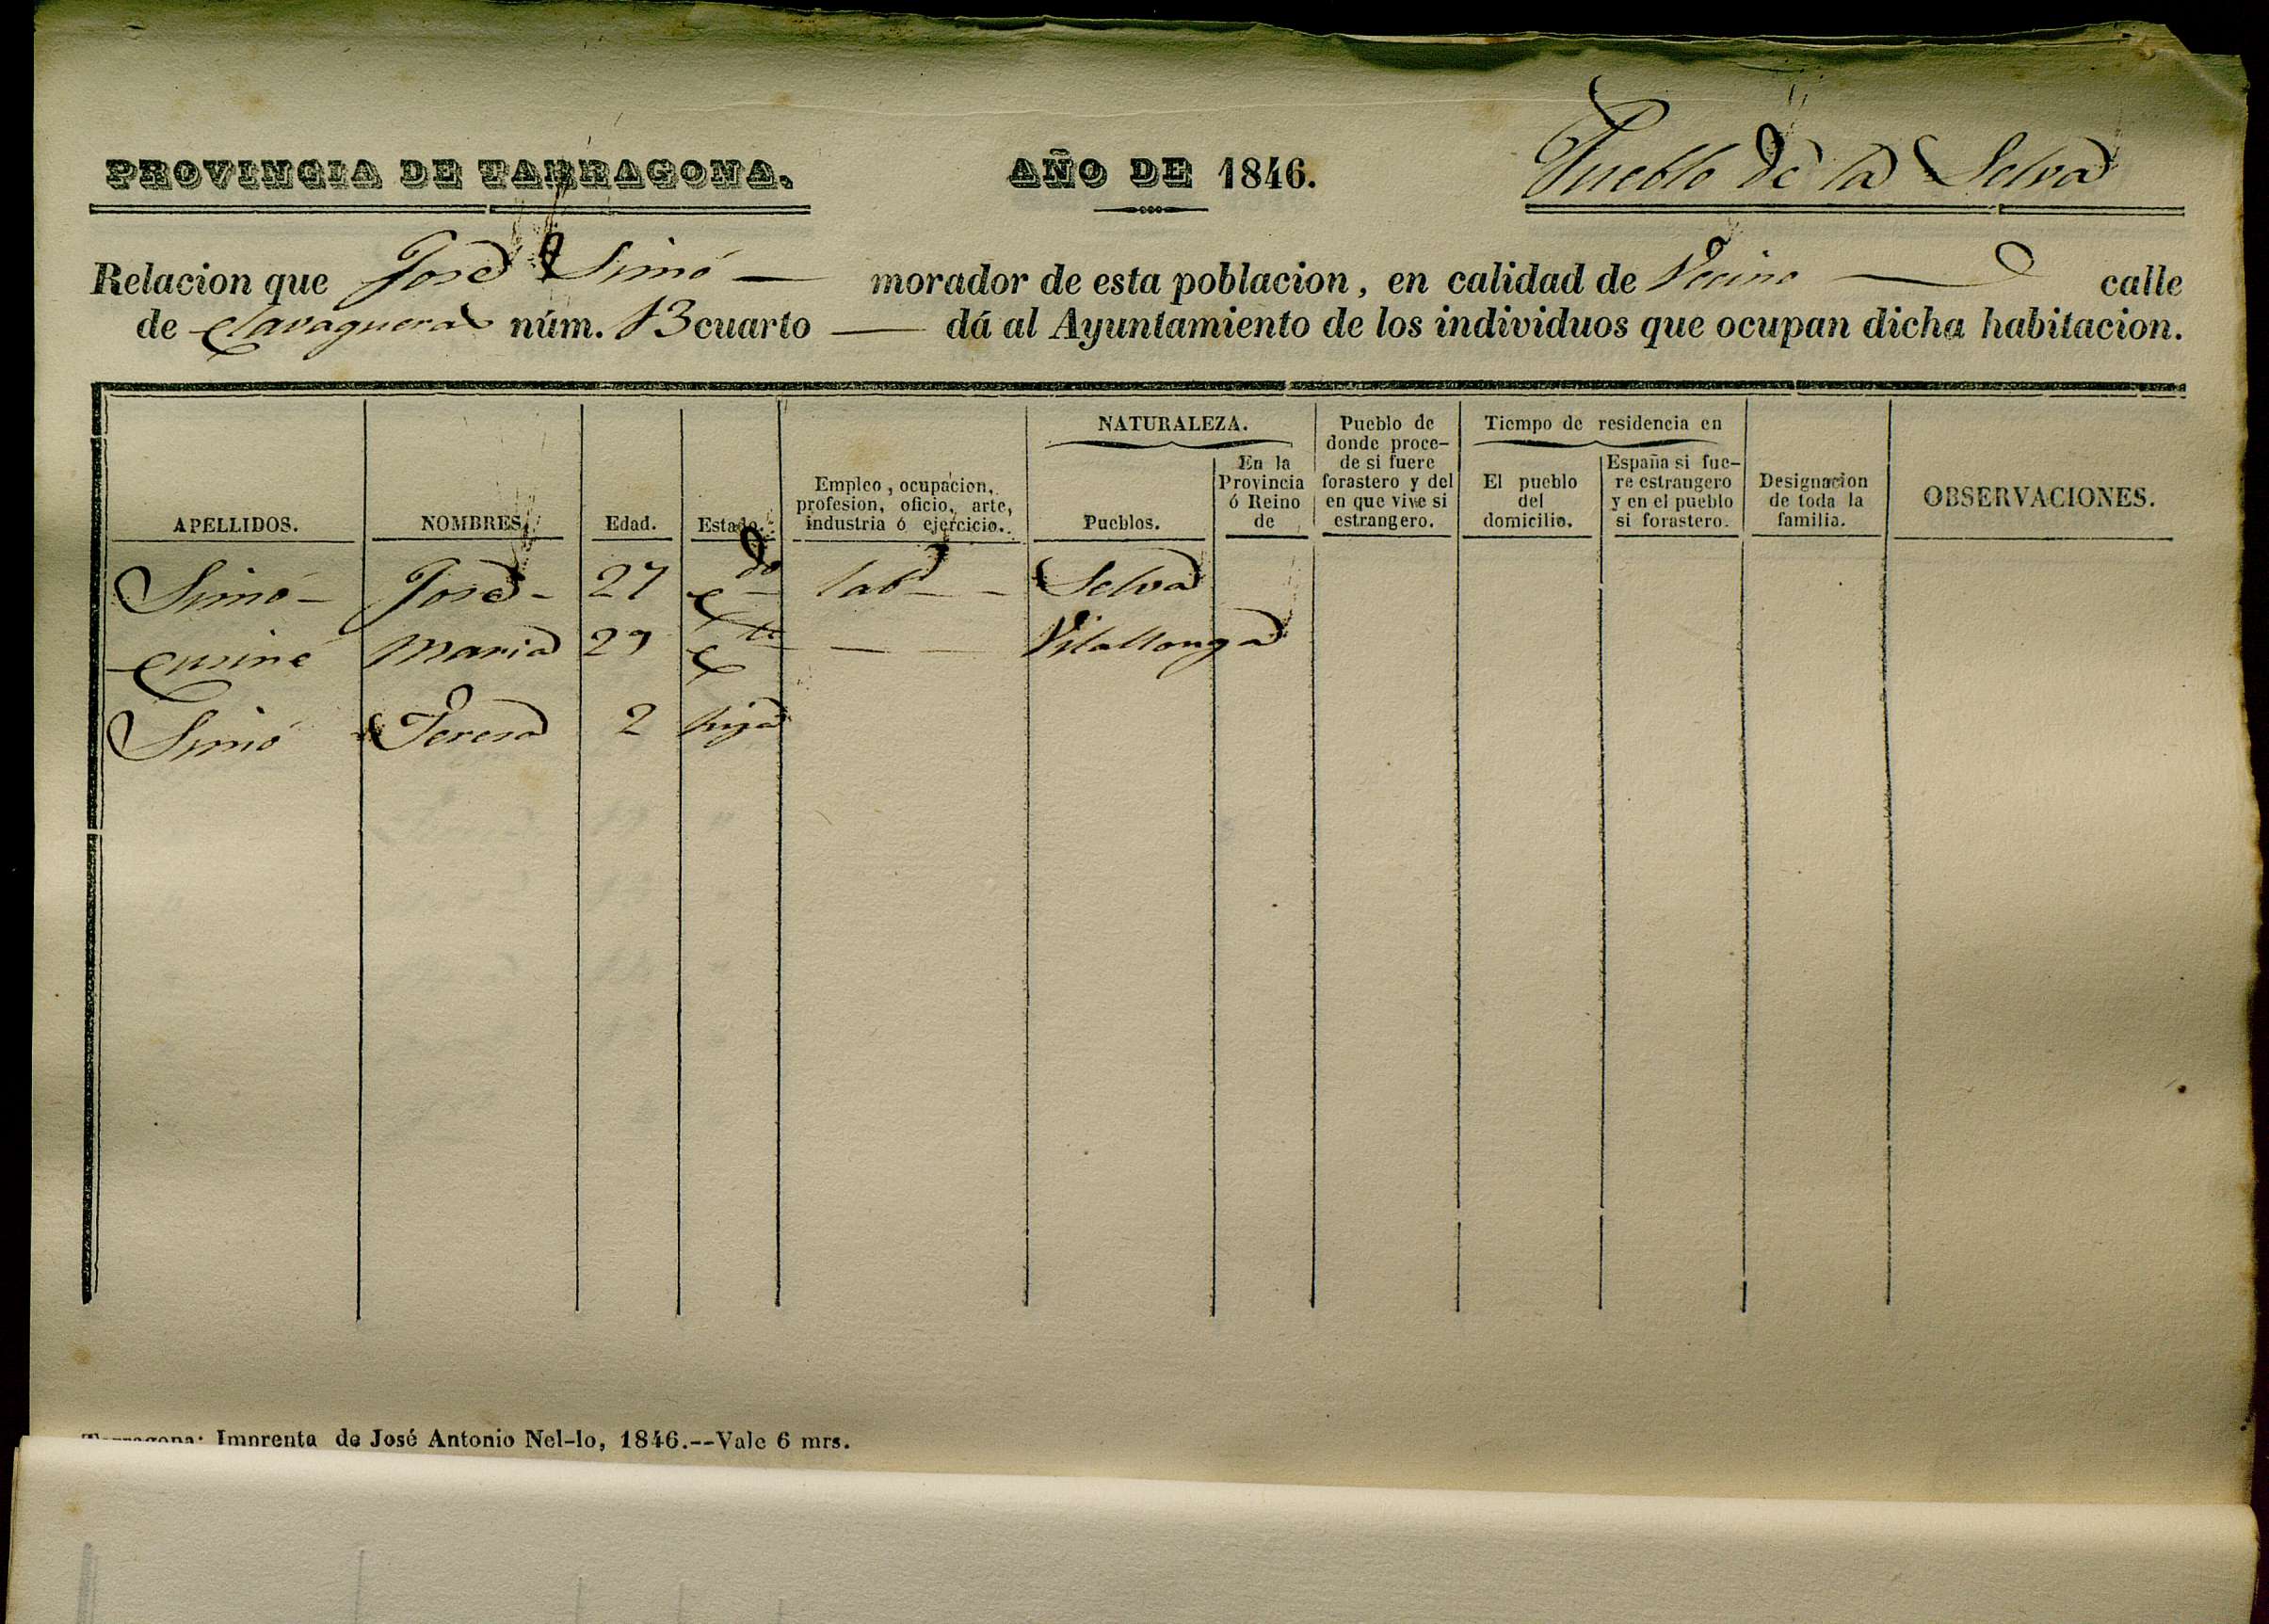 PROVINCIA DE TARRAGONA. AÑO DE 1846. Pueblo de la Selva
Relacion que José Simó — morador de esta poblacion, en calidad de Vecino — calle
de Clavaguera núm. 13 cuarto — dá al Ayuntamiento de los individuos que ocupan dicha habitacion.
APELLIDOS.
NOMBRES.
Edad.
Estado.
Empleo, ocupacion,
profesion, oficio, arte,
industria ó ejercicio.
NATURALEZA.
Pueblos.
En la
Provincia
ó Reino
de
Pueblo de
donde proce-
de si fuere
forastero y del
en que vive si
estrangero.
Tiempo de residencia en
El pueblo
del
domicilio.
España si fue-
re estrangero
y en el pueblo
si forastero.
Designacion
de toda la
familia.
OBSERVACIONES.
Simó - José - 27 Cdo - labr - - Selva
Maria 29 Cda — — Vilallonga
Simó Teresa 2 hija
Tarragona: Imprenta de José Antonio Nel-lo, 1846.--Vale 6 mrs.